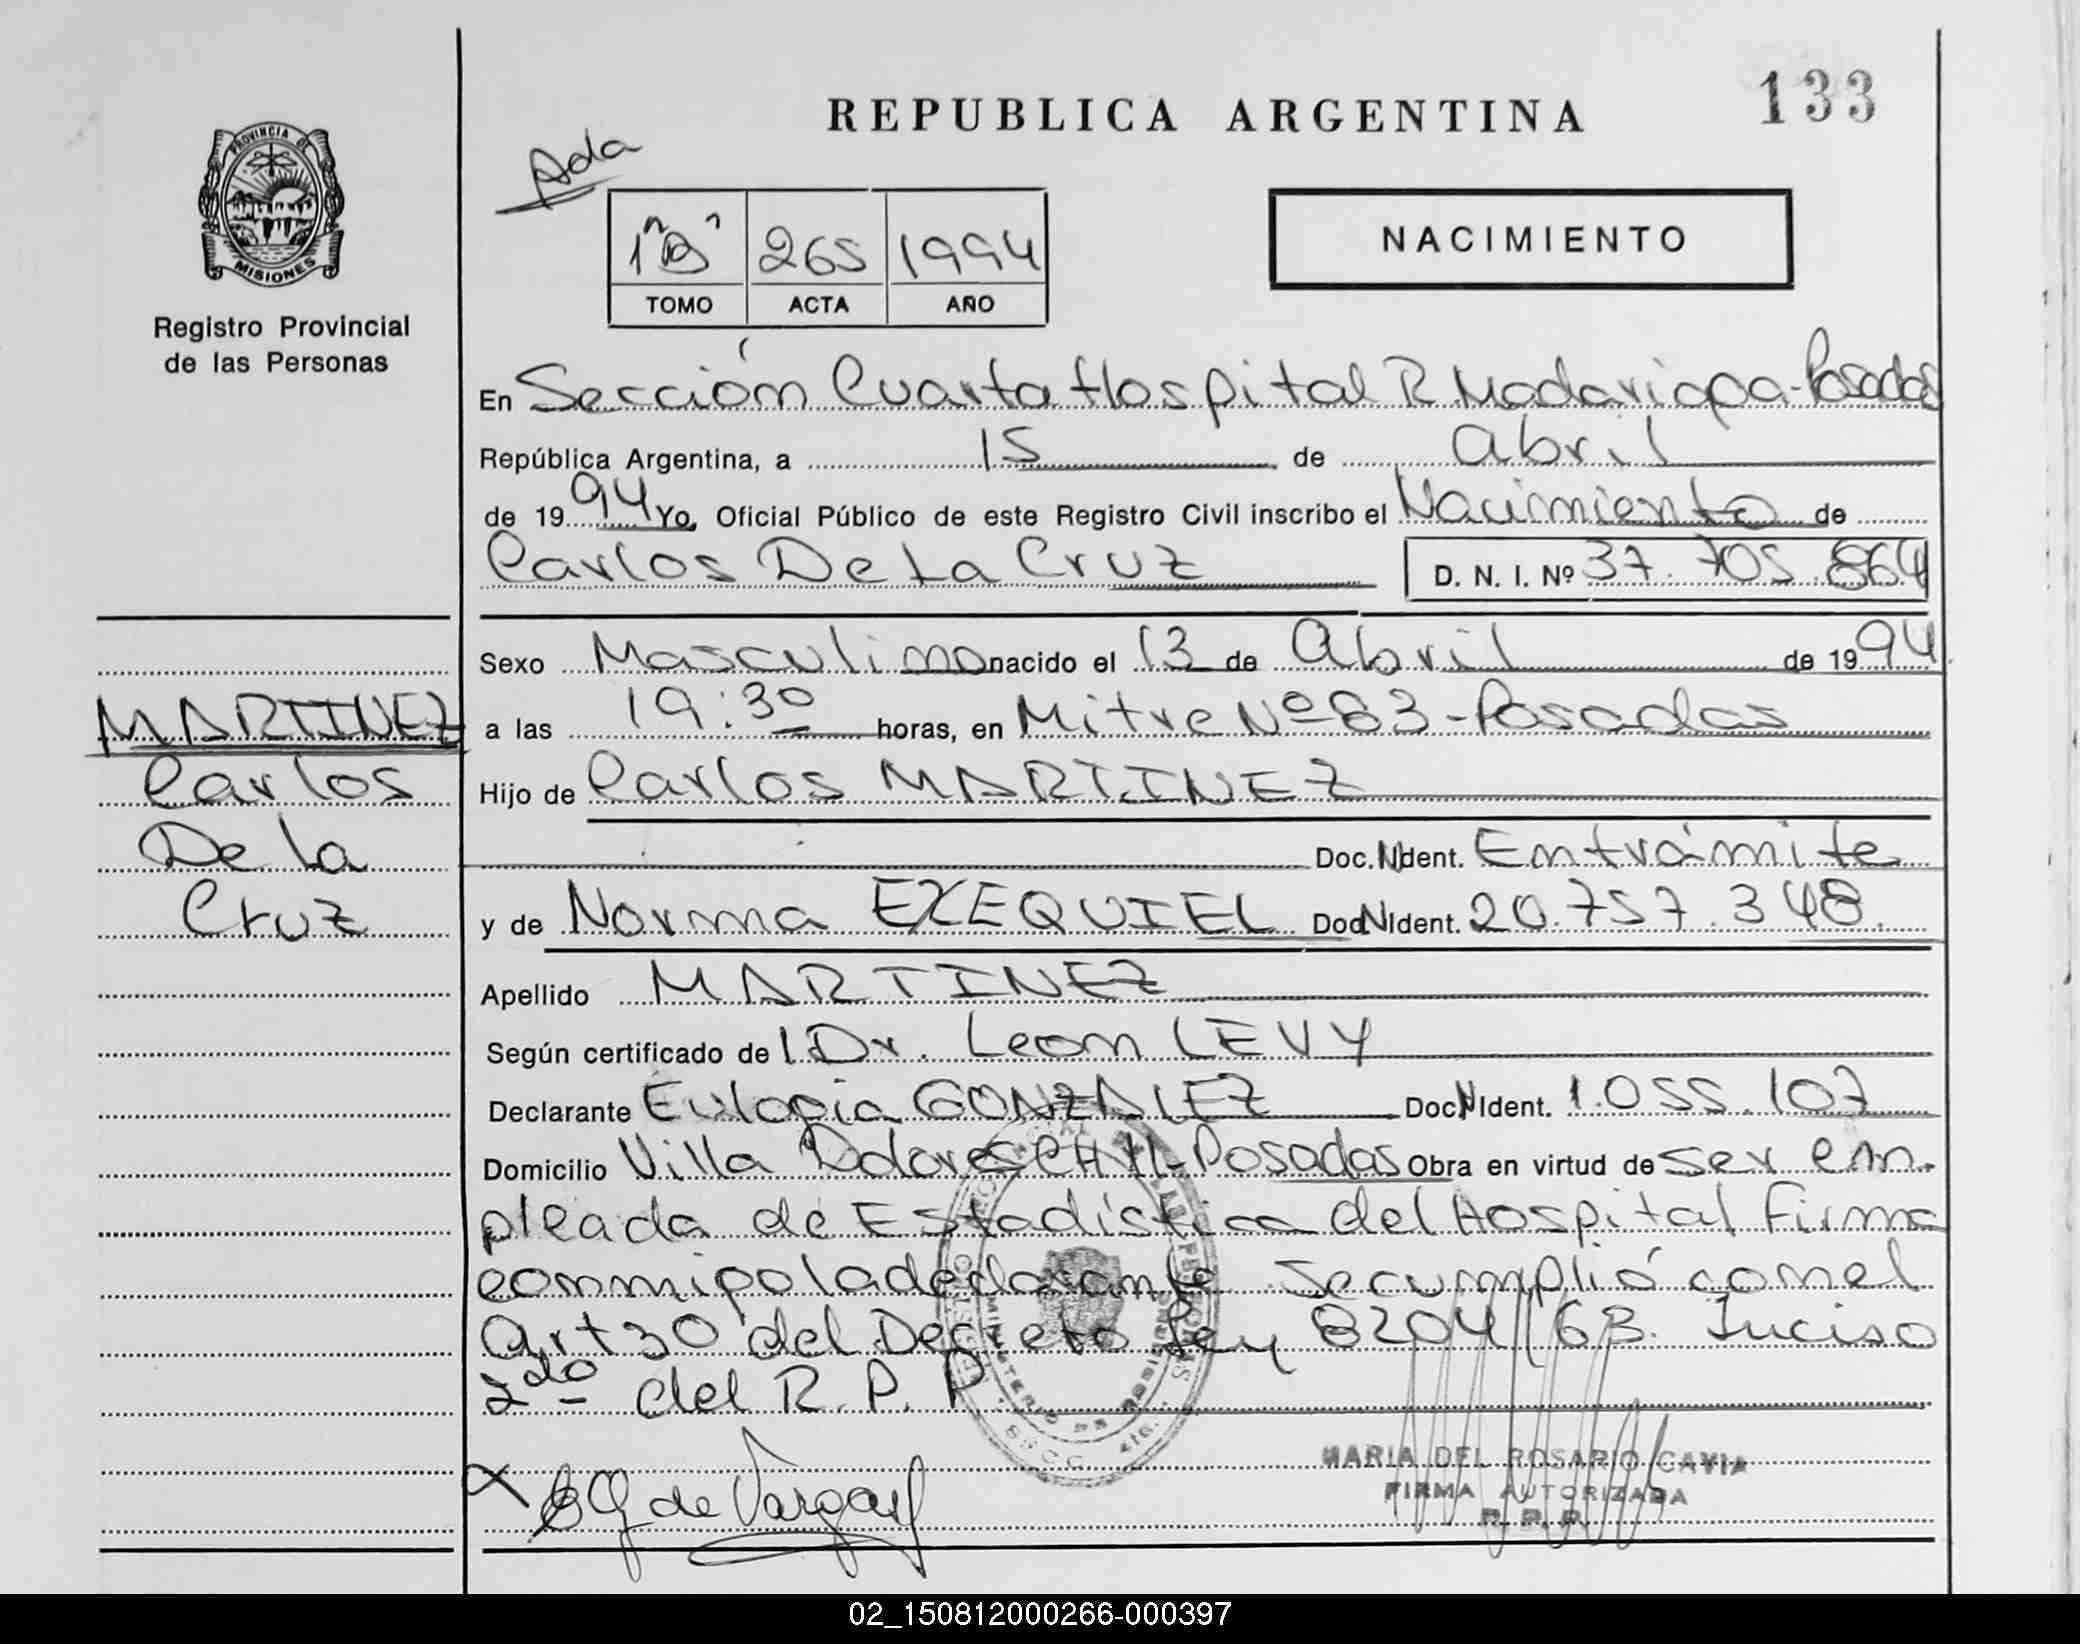 133
REPUBLICA ARGENTINA
Ada
PROVINCIA DE
MISIONES
Registro Provincial
de las Personas
1º "B" 265 1994
TOMO ACTA AÑO
NACIMIENTO
En Sección Cuarta Hospital R. Madariaga-Posadas
República Argentina, a 15 de abril
de 1994 Yo, Oficial Público de este Registro Civil inscribo el Nacimiento de
Carlos De La Cruz D. N. I. Nº 37.705.864
Sexo Masculino nacido el 13 de Abril de 1994
a las 19:30 horas, en Mitre Nº 83-Posadas
Hijo de Carlos MARTINEZ
Doc. N Ident. En trámite
y de Norma EXEQUIEL Doc N Ident. 20.757.348.
Apellido MARTINEZ
Según certificado de l Dr. Leon LEVY
Declarante Eulogia GONZALEZ Doc N Ident. 1.055.107
Domicilio Villa Dolores CH 11-Posadas Obra en virtud de ser em-
pleada de Estadística del Hospital Firma
conmigo la declarante Se cumplió con el
art 30 del Decreto Ley 8204/63. Inciso
2do del R. P. P.
MARTINEZ
Carlos
De la
Cruz
de Vargas
MARIA DEL ROSARIO CAVIA
FIRMA AUTORIZADA
R. P. P.
02_150812000266-000397